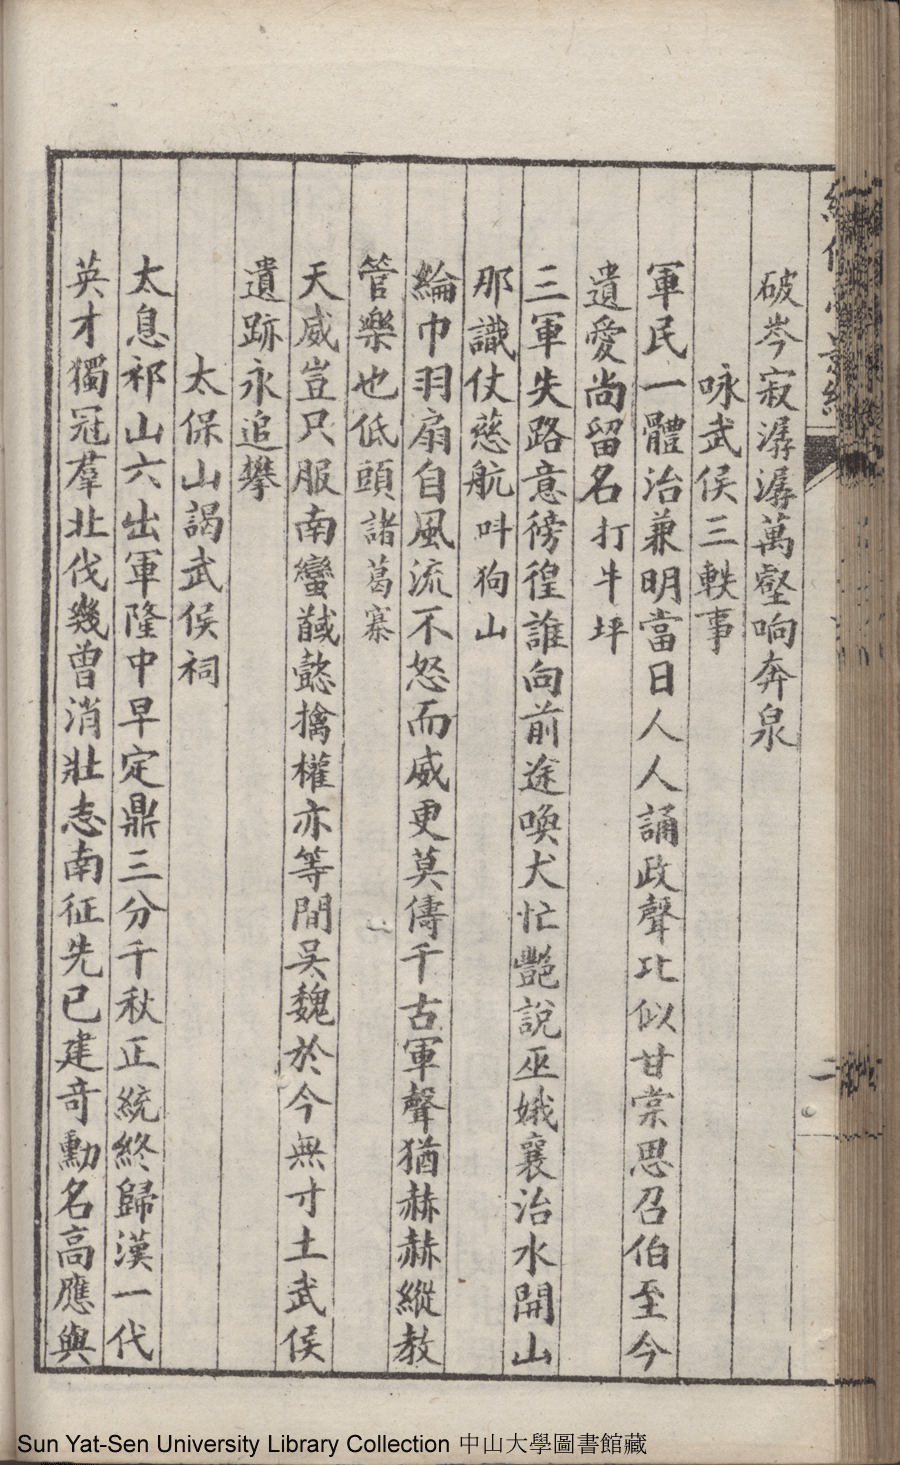 破岑寂潺潺萬壑响奔泉
咏武侯三軼事
軍民一體治兼明當日人人誦政聲比似甘棠思召伯至今
遺愛尚留名打牛坪
三軍失路意徬徨誰向前途喚犬忙艷說巫娥襄治水開山
那識仗慈航呌狗山
綸巾羽扇自風流不怒而威更莫儔千古軍聲猶赫赫縱教
管樂也低頭諸葛寨
天威豈只服南蠻馘懿擒權亦等間吳魏於今無寸土武侯
遺跡永追攀
太保山謁武侯祠
太息祁山六出軍隆中早定鼎三分千秋正統終歸漢一代
英才獨冠羣北伐幾曾消壯志南征先已建竒勳名高應與
Sun Yat-Sen University Library Collection 中山大學圖書館藏